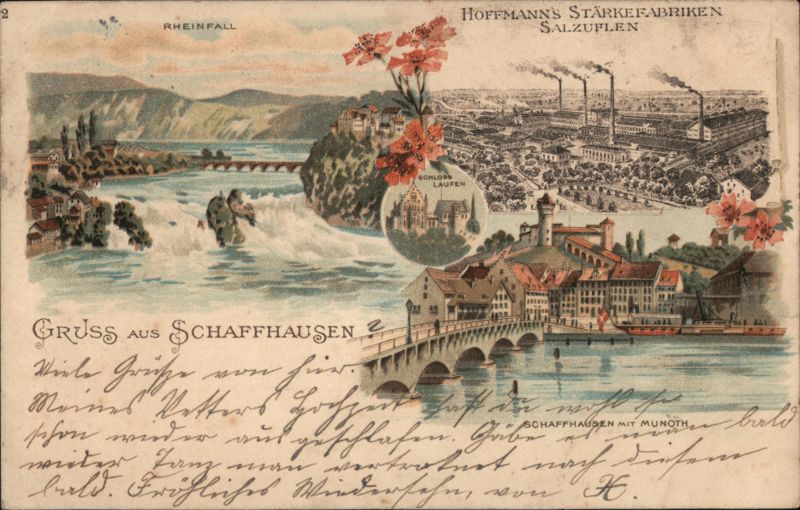 2
RHEINFALL
HOFFMANN'S STÄRKEFABRIKEN
SALZUFLEN
SCHLOSS
LAUFEN
GRUSS AUS SCHAFFHAUSEN
Viele Grüße von hier.
Meines Vetters Hochzeit hast du wohl
schon wieder ausgeschlafen. Gäbe es nun bald
wieder Tanz man vertroknet nach diesem
bald. Fröhliches Wiedersehn, von H.
SCHAFFHAUSEN MIT MUNOTH